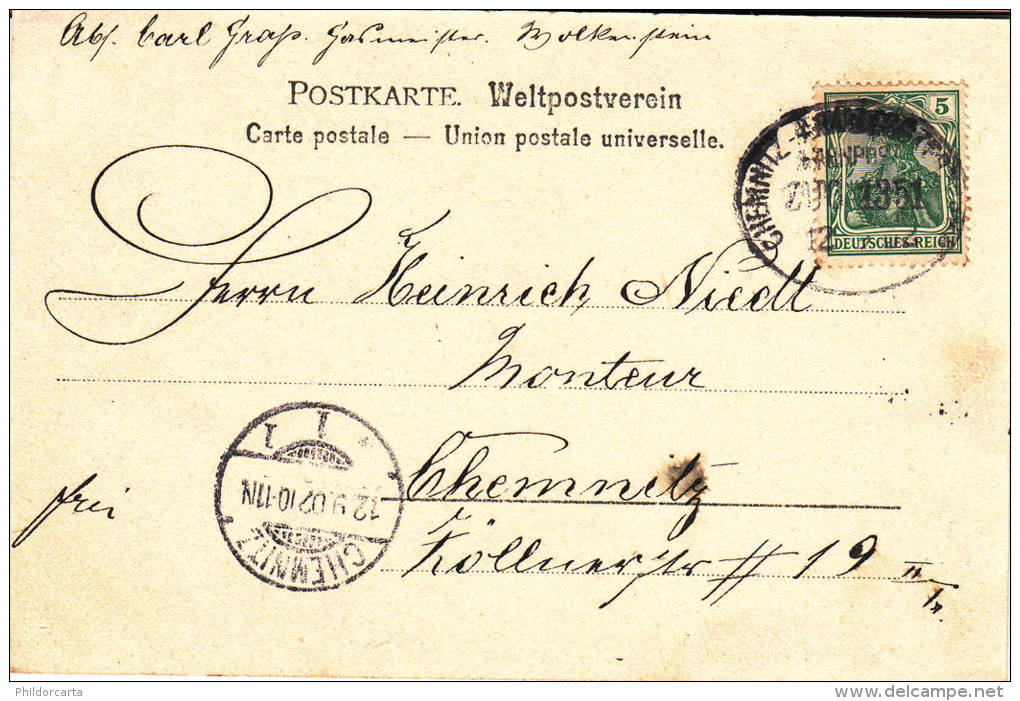 Abs. Carl Graß. Gasmeister. Wolkenstein
POSTKARTE. Weltpostverein
Carte postale — Union postale universelle.
5
DEUTSCHES REICH
CHEMNITZ
BAHNPOST
ZUG 1351
12
Herrn Heinrich Niedl
Monteur
Chemnitz
frei
Köllnerstr # 19 II/r
1 1
12.9.02 10-11N.
CHEMNITZ
Phildorcarta
www.delcampe.net